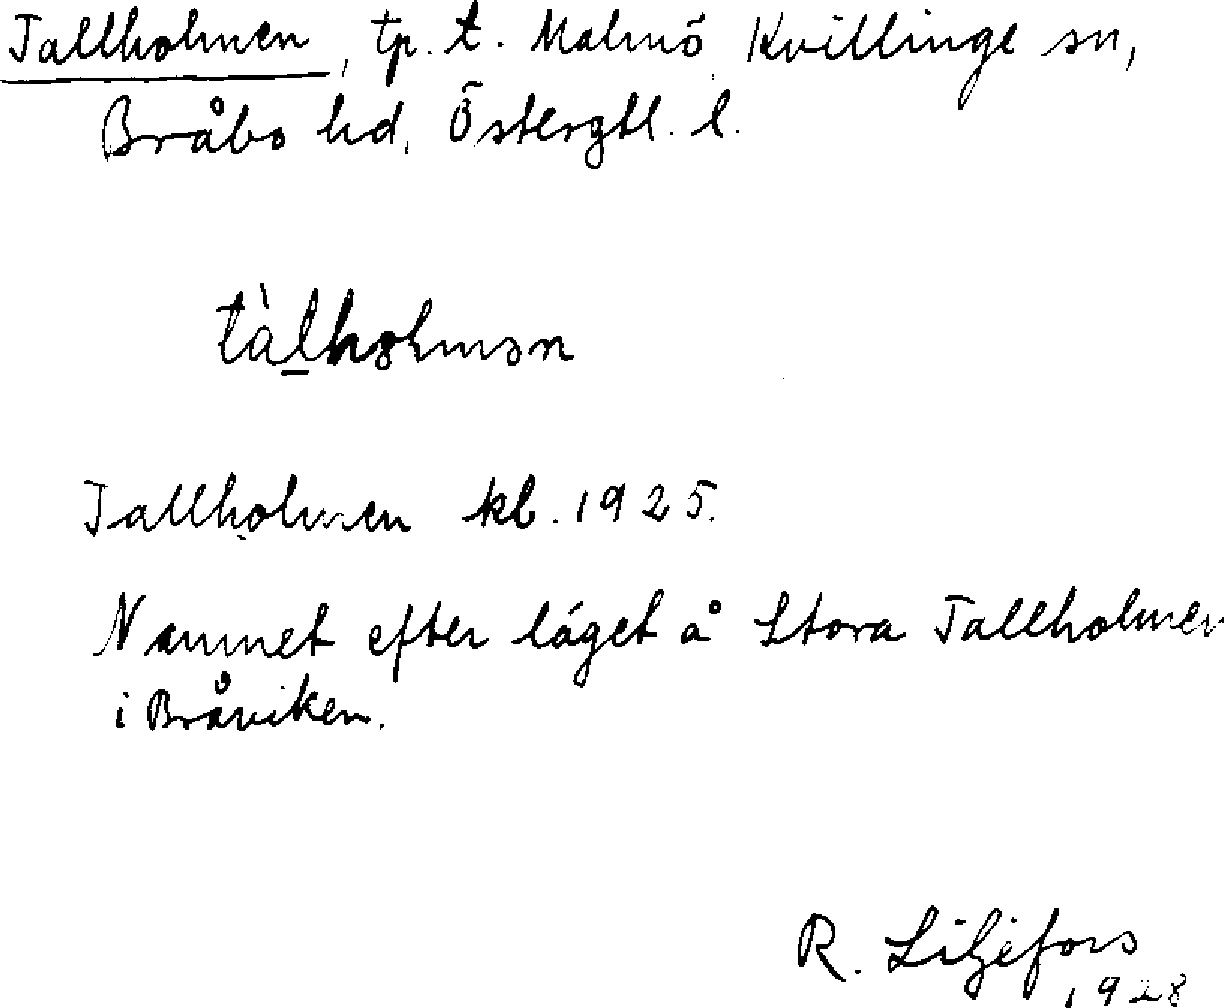 Tallholmen, tp. t. Malmö Kvillinge sn,
Bråbo hd, Östergtl. l.
tàlhɷlmən
Tallholmen kb. 1925.
Namnet efter läget å Stora Tallholmen
i Bråviken.
R. Liljefors
1928